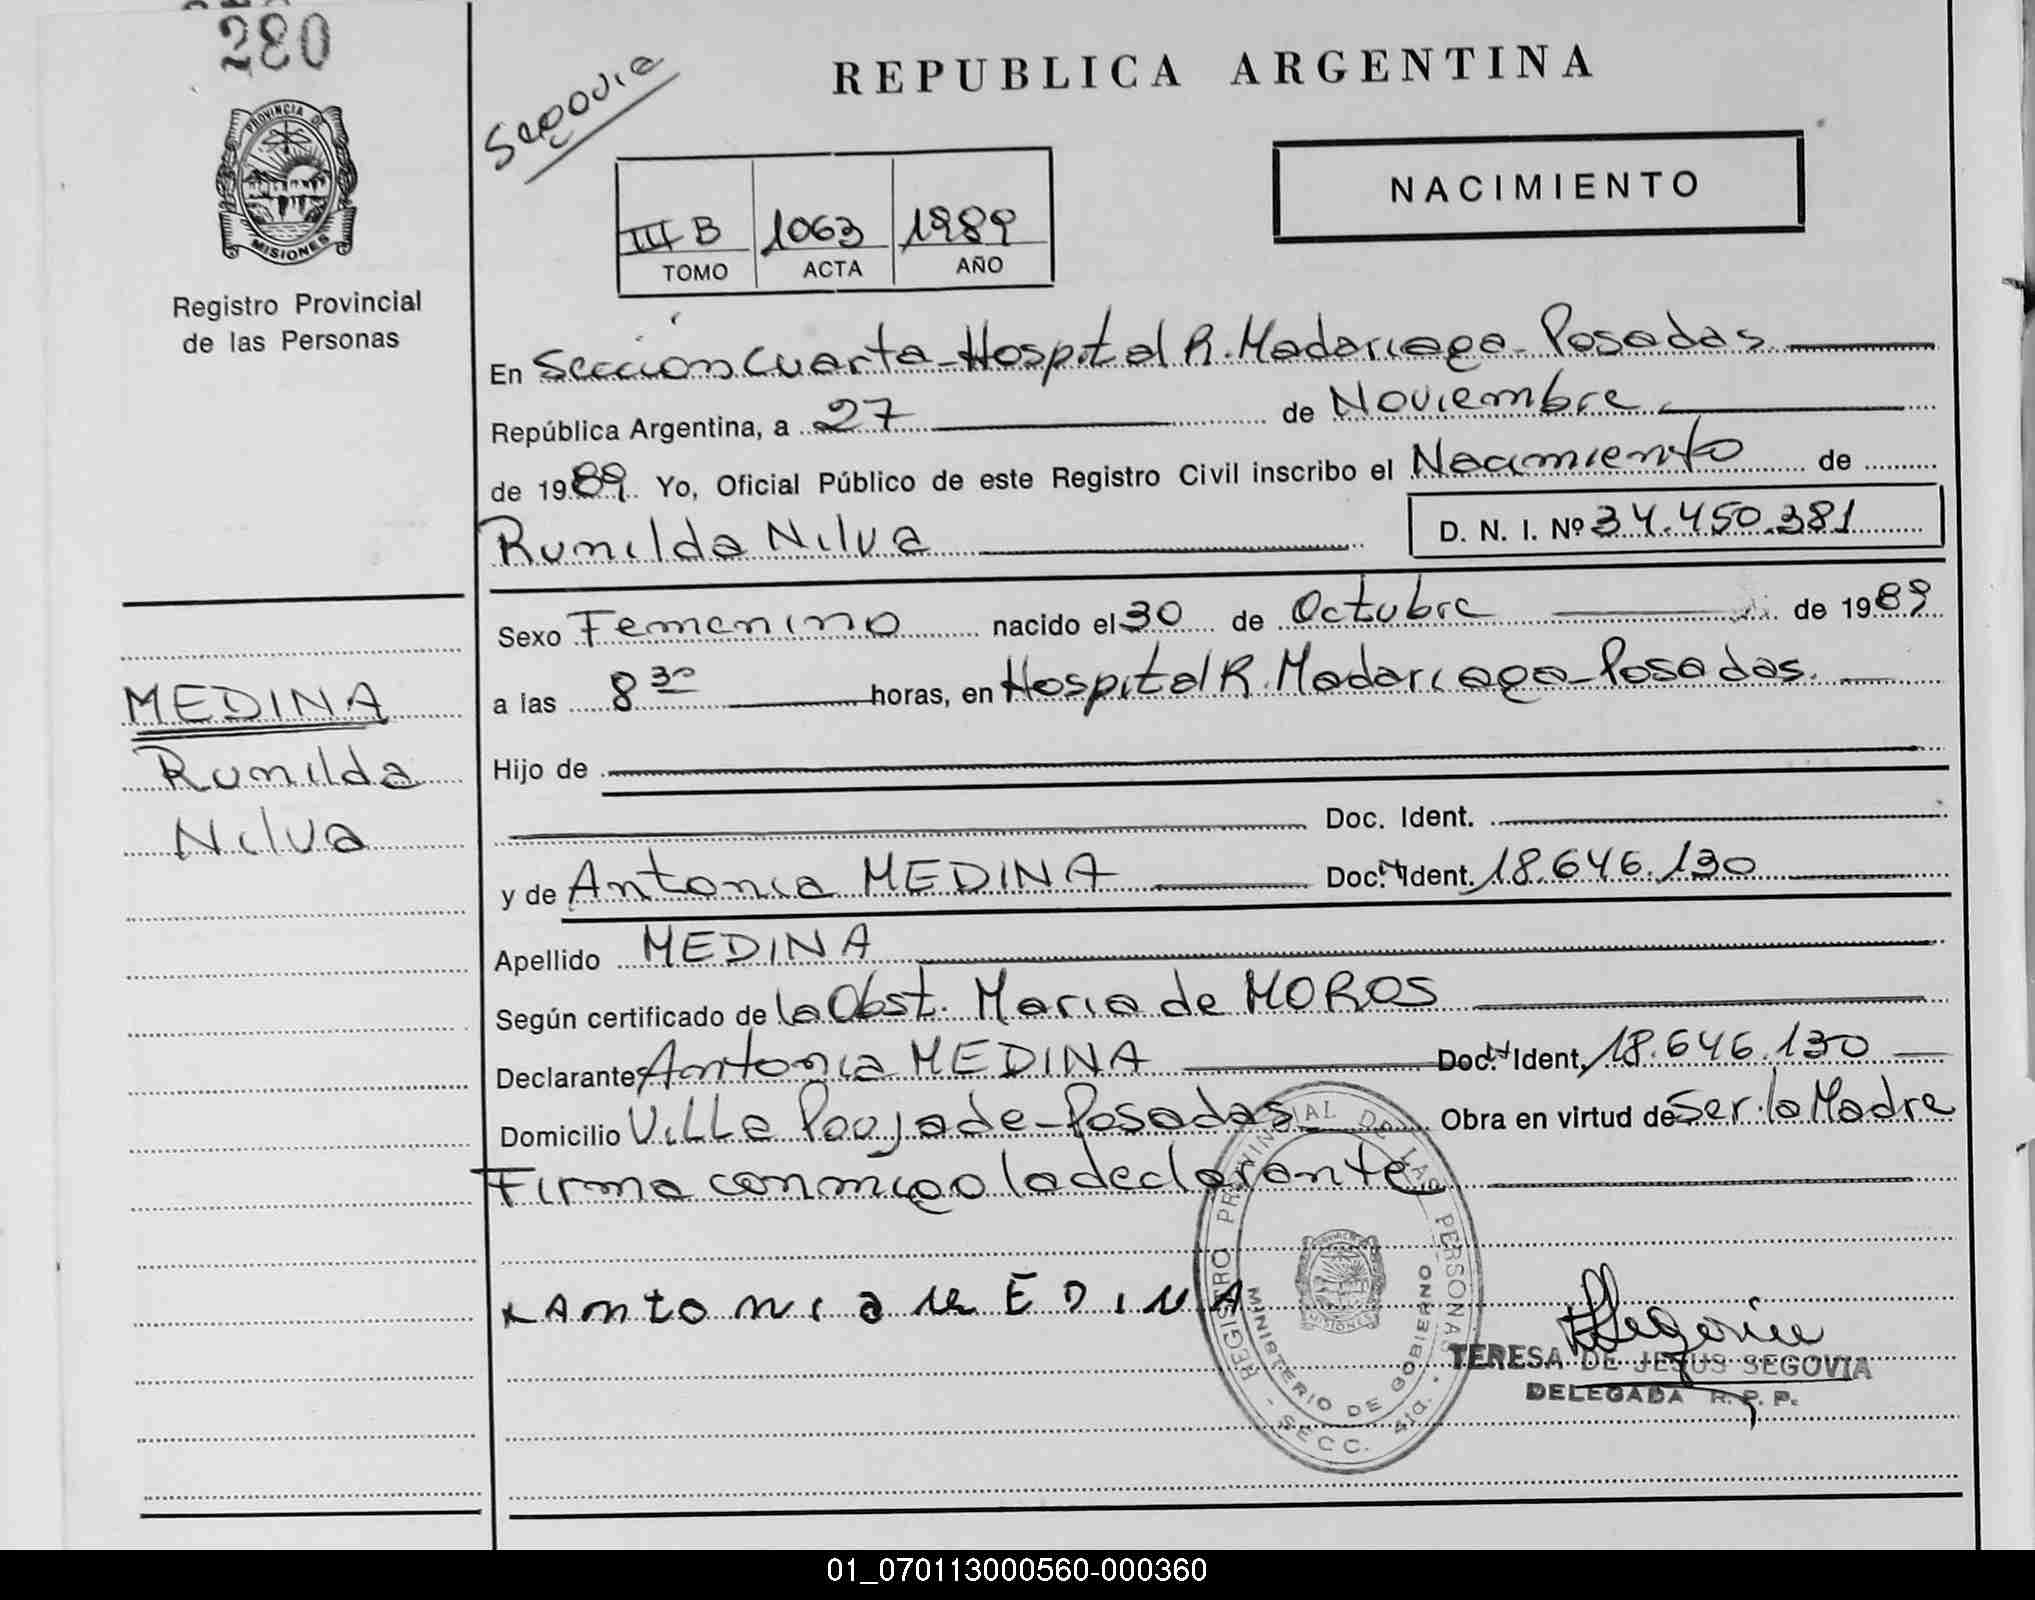 280
PROVINCIA DE
MISIONES
Registro Provincial
de las Personas
Segovia
REPUBLICA ARGENTINA
NACIMIENTO
III B 1063 1989
TOMO ACTA AÑO
En Sección Cuarta - Hospital R. Madariaga - Posadas
República Argentina, a 27 de Noviembre
de 1989 Yo, Oficial Público de este Registro Civil inscribo el Nacimiento de
Rumilda Nilva D. N. I. Nº 34.450.381
Sexo Femenino nacido el 30 de Octubre de 1989
a las 8 30 horas, en Hospital R. Madariaga - Posadas.
MEDINA
Rumilda
Nilva
Hijo de
Doc. Ident.
y de Antonia MEDINA Doc. N Ident. 18.646.130
Apellido MEDINA
Según certificado de la Obst. Maria de MOROS
Declarante Antonia MEDINA Doc. N Ident. 18.646.130
Domicilio Villa Poujade - Posadas Obra en virtud de Ser la Madre
Firma conmigo la declarante
x Antonia MEDINA
REGISTRO PROVINCIAL DE LAS PERSONAS
MINISTERIO DE GOBIERNO
- SECC. 4ta. -
MISIONES
TERESA DE JESUS SEGOVIA
DELEGADA R. P. P.
01_070113000560-000360